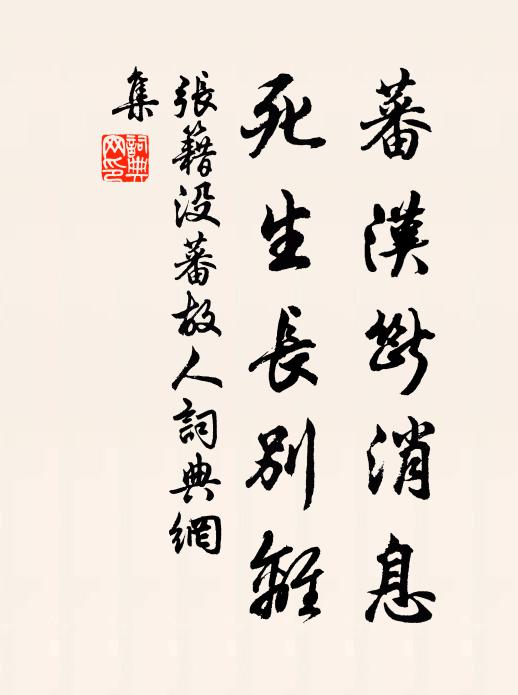 蕃漢斷消息
死生長別離
張籍没蕃故人詞典網
集
詞典
网印